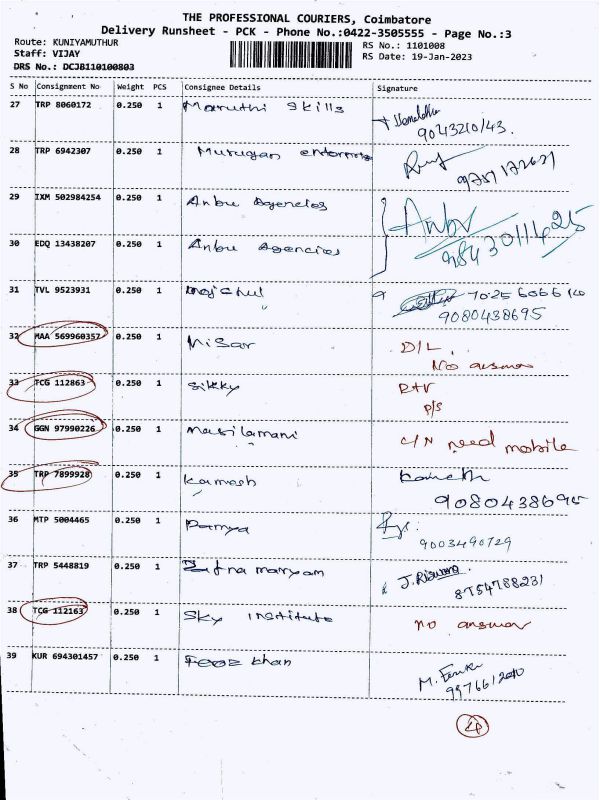 THE PROFESSIONAL COURIERS, Coimbatore
Delivery Runsheet - PCK - Phone No.:0422-3505555 - Page No.:3
Route: KUNIYAMUTHUR
RS No.: 1101008
Staff: VIJAY
RS Date: 19-Jan-2023
DRS No.: DCJB110100803
S No Consignment No Weight PCS Consignee Details Signature
27 TRP 8060172 0.250 1 Maruthi Skills
9043210143.
28 TRP 6942307 0.250 1 Murugan
29 IXM 502984254 0.250 1 Anbu Agencies Anbu
9843011425
30 EDQ 13438207 0.250 1 Anbu Agencies
31 TVL 9523931 0.250 1
9080438695
32 MAA 569960357 0.250 1 Nisar D/L
No answer
33 TCG 112863 0.250 1 Sikky
P/S
34 GGN 97990226 0.250 1 Masilamani C/N need mobile
35 TRP 7899928 0.250 1 Kamesh
9080438695
36 MTP 5004465 0.250 1 Ramya
9003490729
37 TRP 5448819 0.250 1 maryam J.Riswana
8754788231
38 TCG 112163 0.250 1 Sky Institute no answer
39 KUR 694301457 0.250 1 Feroz Khan